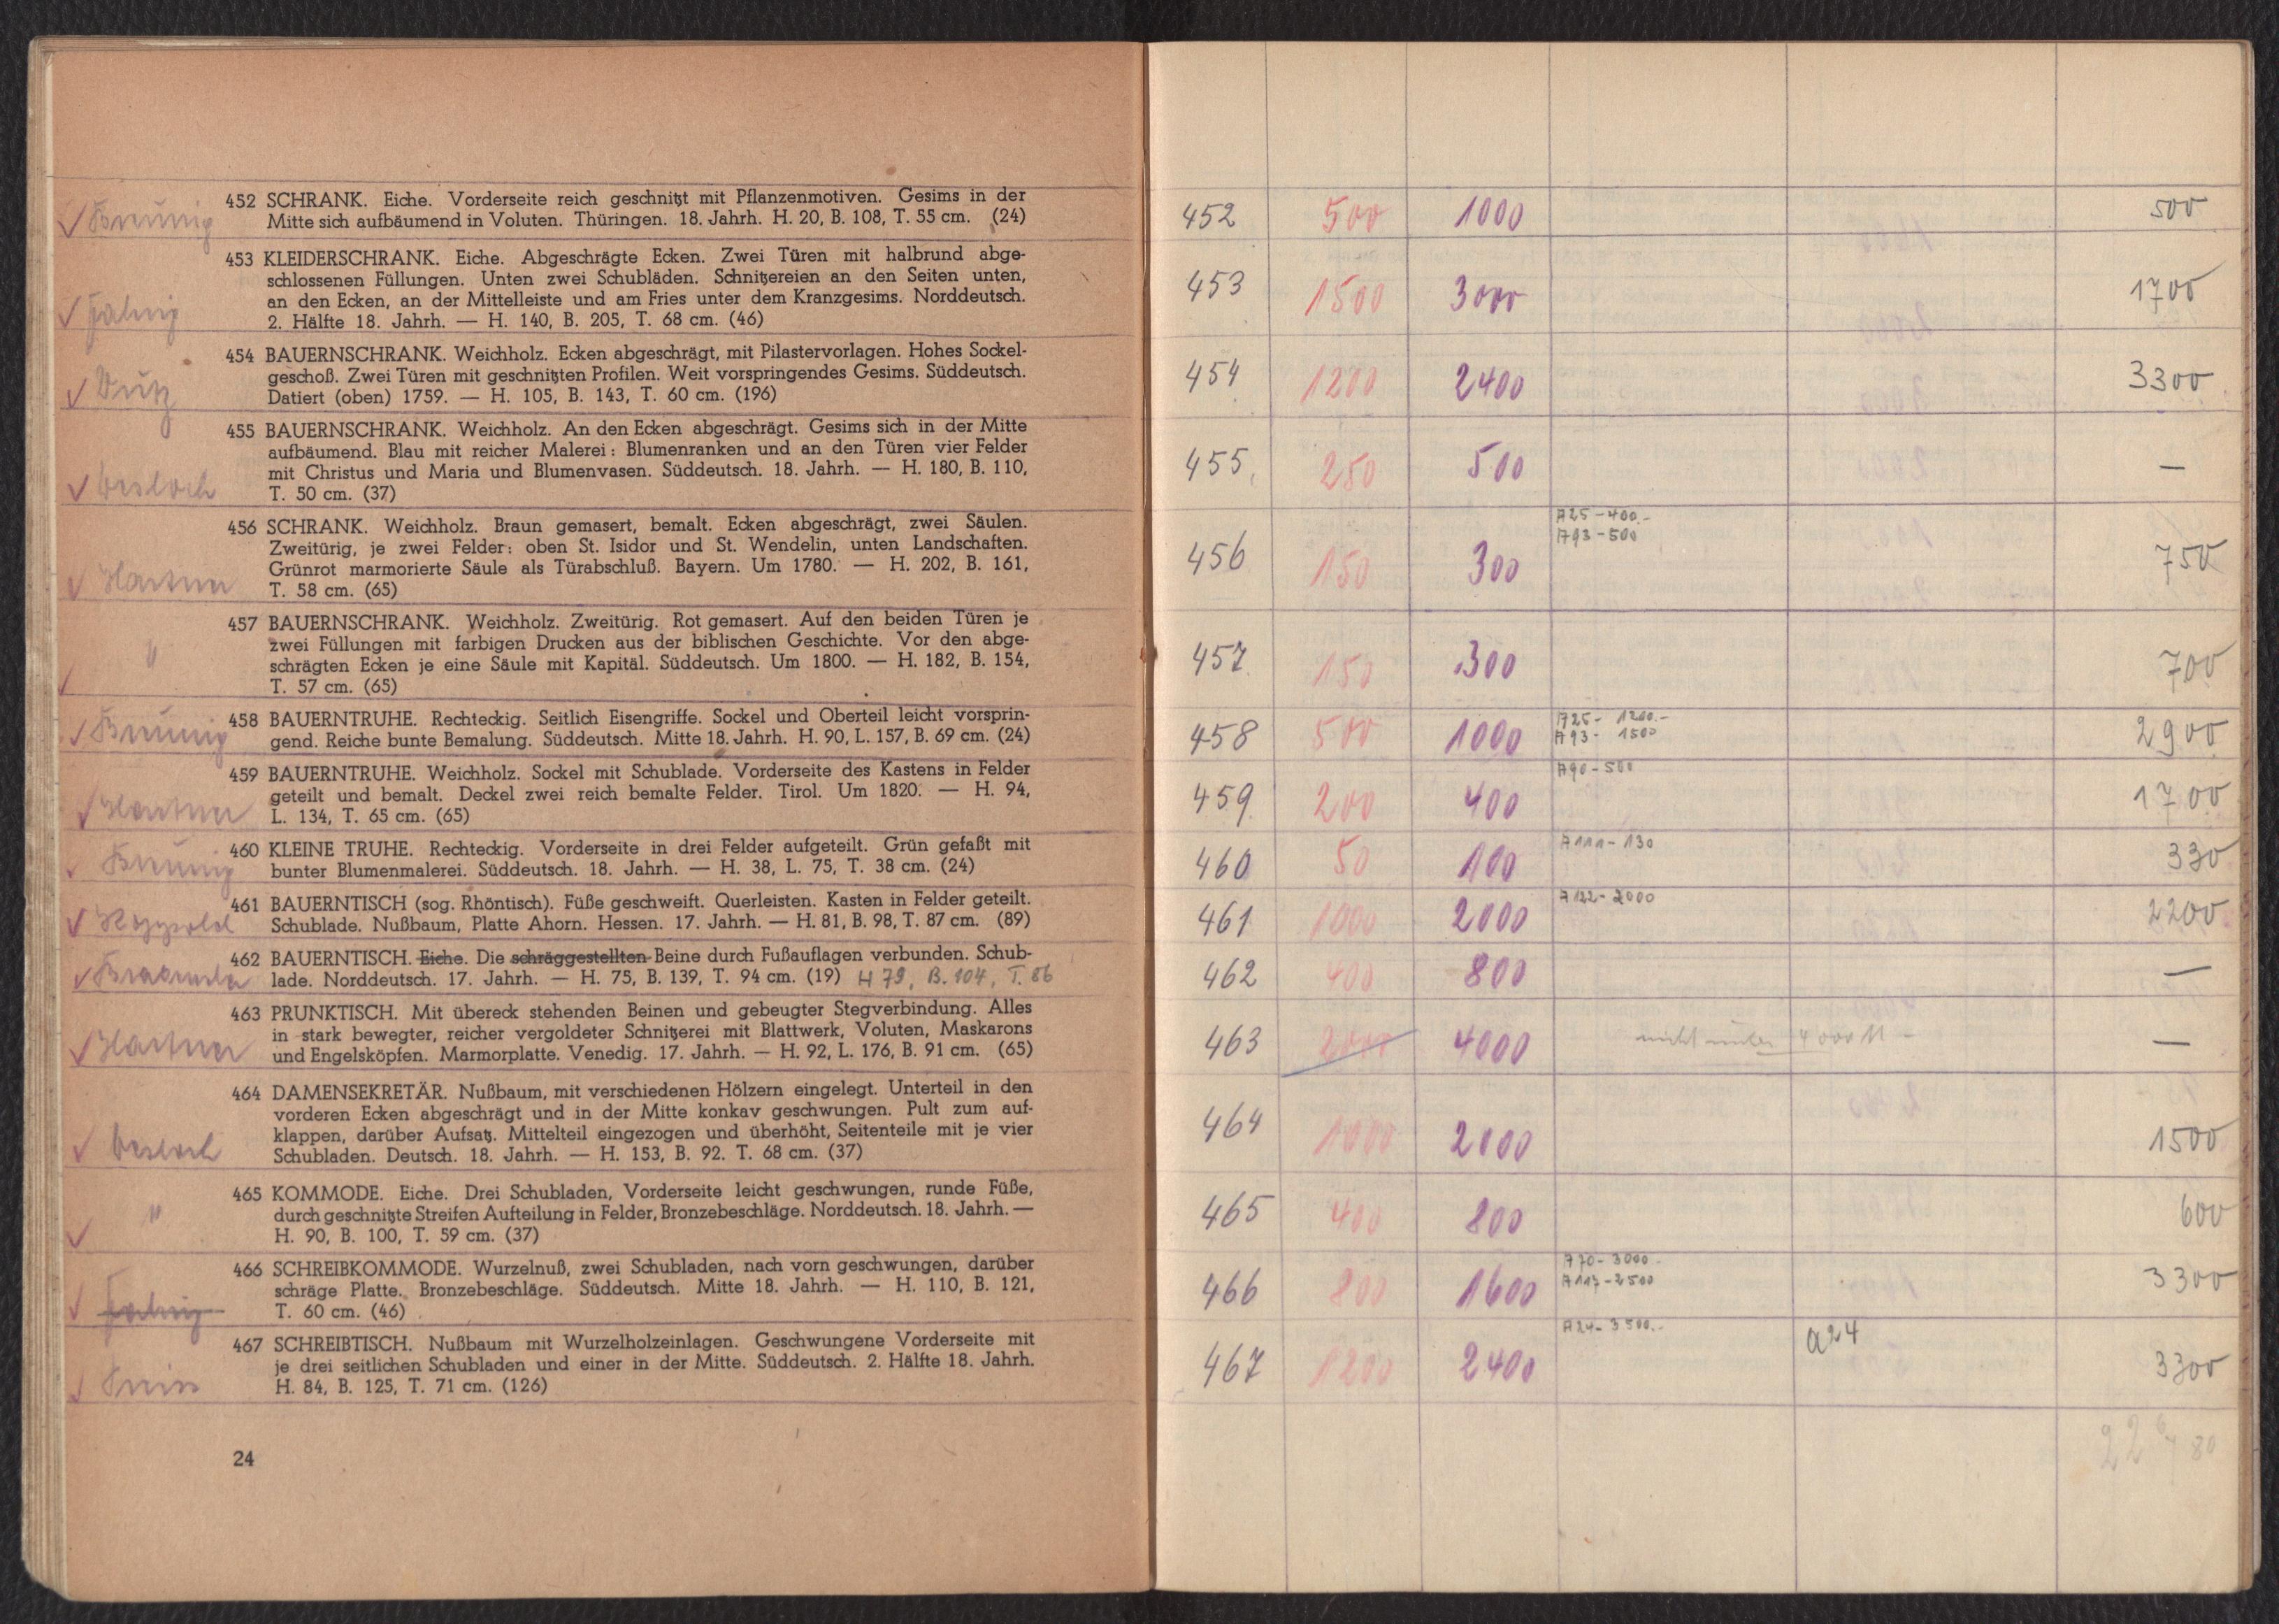 452 SCHRANK. Eiche. Vorderseite reich geschnitzt mit Pflanzenmotiven. Gesims in der
Mitte sich aufbäumend in Voluten. Thüringen. 18. Jahrh. H. 20, B. 108, T. 55 cm. (24)
453 KLEIDERSCHRANK. Eiche. Abgeschrägte Ecken. Zwei Türen mit halbrund abge-
schlossenen Füllungen. Unten zwei Schubläden. Schnitzereien an den Seiten unten,
an den Ecken, an der Mittelleiste und am Fries unter dem Kranzgesims. Norddeutsch.
2. Hälfte 18. Jahrh. — H. 140, B. 205, T. 68 cm. (46)
454 BAUERNSCHRANK. Weichholz. Ecken abgeschrägt, mit Pilastervorlagen. Hohes Sockel-
geschoß. Zwei Türen mit geschnitzten Profilen. Weit vorspringendes Gesims. Süddeutsch.
Datiert (oben) 1759. — H. 105, B. 143, T. 60 cm. (196)
455 BAUERNSCHRANK. Weichholz. An den Ecken abgeschrägt. Gesims sich in der Mitte
aufbäumend. Blau mit reicher Malerei: Blumenranken und an den Türen vier Felder
mit Christus und Maria und Blumenvasen. Süddeutsch. 18. Jahrh. — H. 180, B. 110,
T. 50 cm. (37)
456 SCHRANK. Weichholz. Braun gemasert, bemalt. Ecken abgeschrägt, zwei Säulen.
Hartner Zweitürig, je zwei Felder: oben St. Isidor und St. Wendelin, unten Landschaften.
Grünrot marmorierte Säule als Türabschluß. Bayern. Um 1780. — H. 202, B. 161,
T. 58 cm. (65)
457 BAUERNSCHRANK. Weichholz. Zweitürig. Rot gemasert. Auf den beiden Türen je
" zwei Füllungen mit farbigen Drucken aus der biblischen Geschichte. Vor den abge-
schrägten Ecken je eine Säule mit Kapitäl. Süddeutsch. Um 1800. — H. 182, B. 154,
T. 57 cm. (65)
458 BAUERNTRUHE. Rechteckig. Seitlich Eisengriffe. Sockel und Oberteil leicht vorsprin-
gend. Reiche bunte Bemalung. Süddeutsch. Mitte 18. Jahrh. H. 90, L. 157, B. 69 cm. (24)
459 BAUERNTRUHE. Weichholz. Sockel mit Schublade. Vorderseite des Kastens in Felder
Hartner geteilt und bemalt. Deckel zwei reich bemalte Felder. Tirol. Um 1820. — H. 94,
L. 134, T. 65 cm. (65)
460 KLEINE TRUHE. Rechteckig. Vorderseite in drei Felder aufgeteilt. Grün gefaßt mit
bunter Blumenmalerei. Süddeutsch. 18. Jahrh. — H. 38, L. 75, T. 38 cm. (24)
461 BAUERNTISCH (sog. Rhöntisch). Füße geschweift. Querleisten. Kasten in Felder geteilt.
Schublade. Nußbaum, Platte Ahorn. Hessen. 17. Jahrh. — H. 81, B. 98, T. 87 cm. (89)
462 BAUERNTISCH. Eiche. Die schräggestellten Beine durch Fußauflagen verbunden. Schub-
lade. Norddeutsch. 17. Jahrh. — H. 75, B. 139, T. 94 cm. (19) H 79, B. 104, T. 86
463 PRUNKTISCH. Mit übereck stehenden Beinen und gebeugter Stegverbindung. Alles
Hartner in stark bewegter, reicher vergoldeter Schnitzerei mit Blattwerk, Voluten, Maskarons
und Engelsköpfen. Marmorplatte. Venedig. 17. Jahrh. — H. 92, L. 176, B. 91 cm. (65)
464 DAMENSEKRETÄR. Nußbaum, mit verschiedenen Hölzern eingelegt. Unterteil in den
vorderen Ecken abgeschrägt und in der Mitte konkav geschwungen. Pult zum auf-
klappen, darüber Aufsatz. Mittelteil eingezogen und überhöht, Seitenteile mit je vier
Schubladen. Deutsch. 18. Jahrh. — H. 153, B. 92. T. 68 cm. (37)
465 KOMMODE. Eiche. Drei Schubladen, Vorderseite leicht geschwungen, runde Füße,
" durch geschnitzte Streifen Aufteilung in Felder, Bronzebeschläge. Norddeutsch. 18. Jahrh. —
H. 90, B. 100, T. 59 cm. (37)
466 SCHREIBKOMMODE. Wurzelnuß, zwei Schubladen, nach vorn geschwungen, darüber
schräge Platte. Bronzebeschläge. Süddeutsch. Mitte 18. Jahrh. — H. 110, B. 121,
T. 60 cm. (46)
467 SCHREIBTISCH. Nußbaum mit Wurzelholzeinlagen. Geschwungene Vorderseite mit
je drei seitlichen Schubladen und einer in der Mitte. Süddeutsch. 2. Hälfte 18. Jahrh.
H. 84, B. 125, T. 71 cm. (126)
24
452 500 1000 500
453 1500 3000 1700
454 1200 2400 3300
455 250 500 —
A25 - 400.-
A93 - 500
456 150 300 750
457 150 300 700
A25 - 1200.-
A93 - 1500
458 500 1000 2900
A90 - 500
459 200 400 1700
A111 - 130
460 50 100 330
A122 - 2000
461 1000 2000 2200
462 400 800 —
463 2000 4000 nicht unter 4000 M - —
464 1000 2000 1500
465 400 800 600
A70 - 3000.-
A117 - 2500
466 800 1600 3300
A24 - 3500.-
a24
467 1200 2400 3300